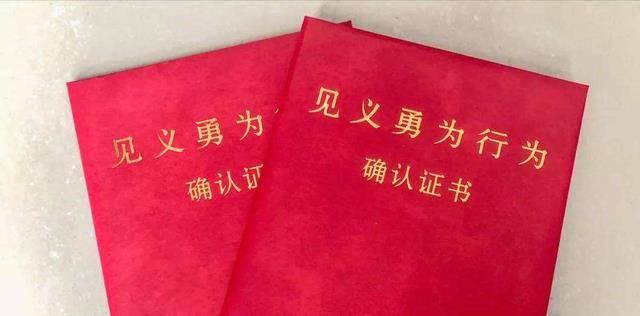 见义勇为
确认证
见义勇为行为
确认证书